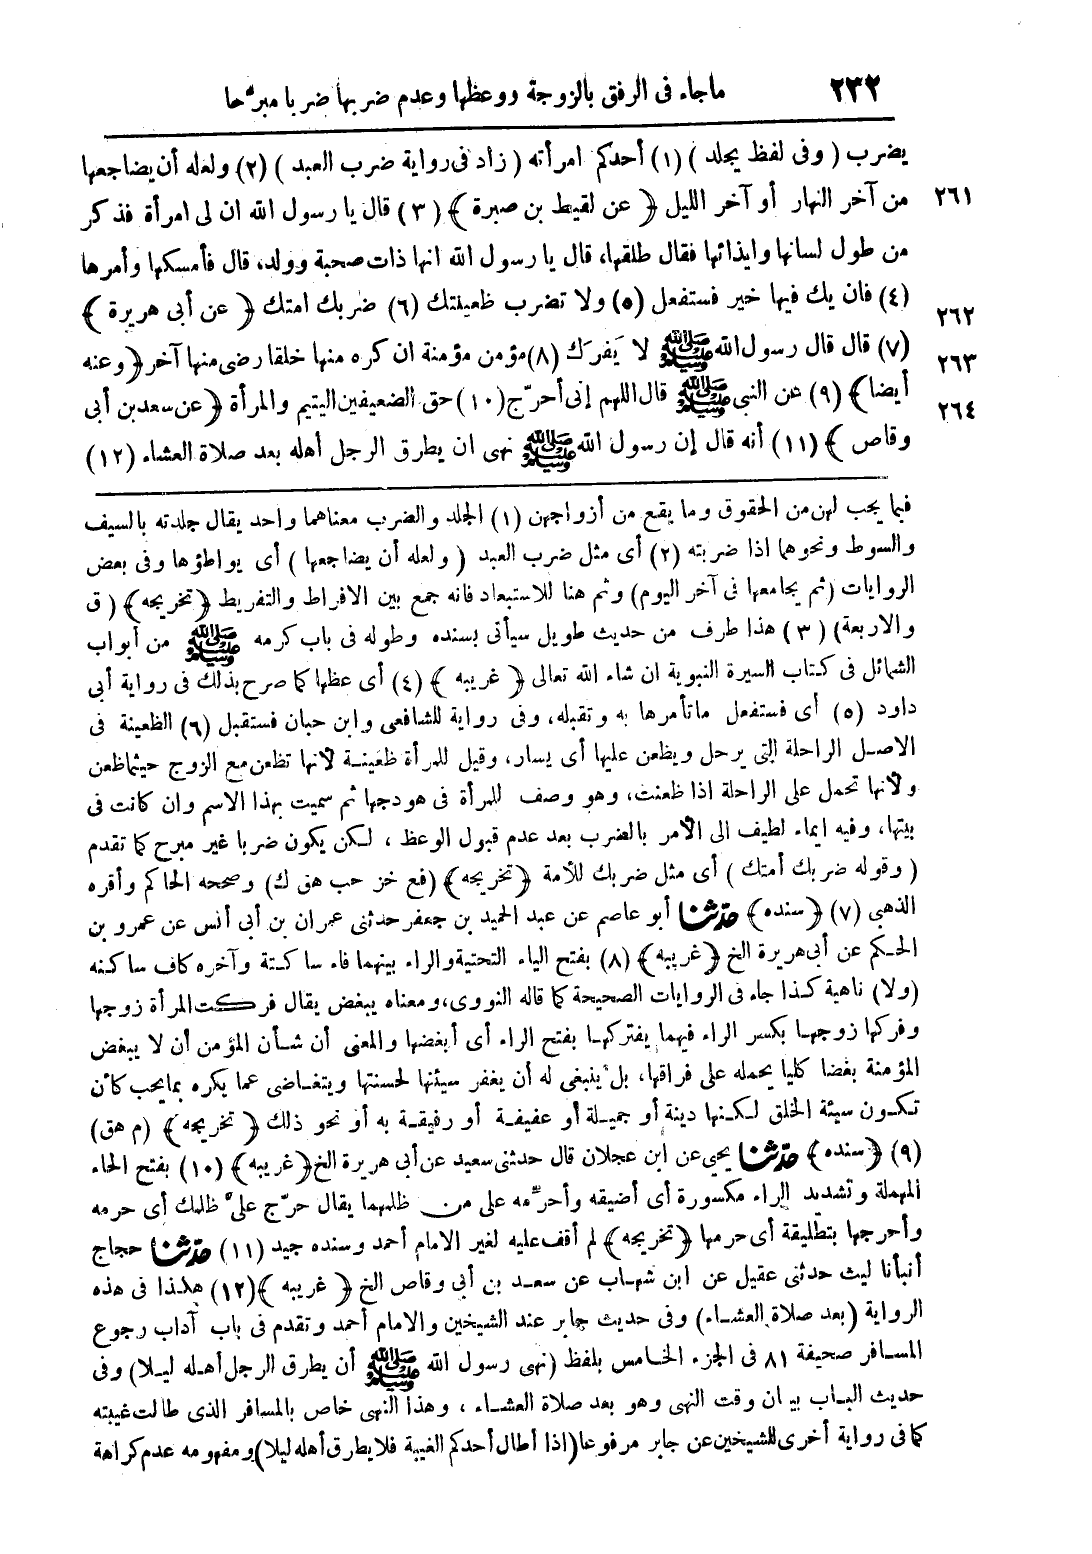 ٢٣٢ ماجاء فى الرفق بالزوجة ووعظها وعدم ضربها ضربا مبرّحا
يضرب (وفى لفظ يجلد) (١) أحدكم امرأته (زاد فى رواية ضرب العبد) (٢) ولعله أن يضاجعها
٢٦١ من آخر النهار أو آخر الليل ﴿عن لقيط بن صبرة﴾ (٣) قال يا رسول الله ان لى امرأة فذكر
من طول لسانها وايذائها فقال طلقها، قال يا رسول الله انها ذات صحبة وولد، قال فأمسكها وأمرها
٢٦٢ (٤) فان يك فيها خير فستفعل (٥) ولا تضرب ظعينتك (٦) ضربك امتك ﴿عن أبى هريرة﴾
٢٦٣ (٧) قال قال رسول الله ﷺ لا يَفرَك (٨) مؤمن مؤمنة ان كره منها خلقا رضى منها آخر ﴿وعنه
٢٦٤ أيضا﴾ (٩) عن النبى ﷺ قال اللهم إنى أحرّج (١٠) حق الضعيفين اليتيم والمرأة ﴿عن سعد بن أبى
وقاص﴾ (١١) أنه قال إن رسول الله ﷺ نهى ان يطرق الرجل أهله بعد صلاة العشاء (١٢)
فيما يجب لهن من الحقوق وما يقع من أزواجهن (١) الجلد والضرب معناهما واحد يقال جلدته بالسيف
والسوط ونحوهما اذا ضربته (٢) أى مثل ضرب العبد (ولعله أن يضاجعها) أى يواطؤها وفى بعض
الروايات (ثم يجامعها فى آخر اليوم) وثم هنا للاستبعاد فانه جمع بين الافراط والتفريط ﴿تخريجه﴾ (ق
والاربعة) (٣) هذا طرف من حديث طويل سيأتى بسنده وطوله فى باب كرمه ﷺ من أبواب
الشمائل فى كتاب السيرة النبوية ان شاء الله تعالى ﴿غريبه﴾ (٤) أى عظها كما صرح بذلك فى رواية أبى
داود (٥) أى فستفعل ماتأمرها به وتقبله، وفى رواية للشافعى وابن حبان فستقبل (٦) الظعينة فى
الاصل الراحلة التى يرحل ويظعن عليها أى يسار، وقيل للمرأة ظعينة لانها تظعن مع الزوج حيثما ظعن
ولأنها تحمل على الراحلة اذا ظعنت، وهو وصف للمرأة فى هودجها ثم سميت بهذا الاسم وان كانت فى
بيتها، وفيه ايماء لطيف الى الأمر بالضرب بعد عدم قبول الوعظ، لكن يكون ضربا غير مبرح كما تقدم
(وقوله ضربك أمتك) أى مثل ضربك للأمة ﴿تخريجه﴾ (فع خز حب هق ك) وصححه الحاكم وأقره
الذهبى (٧) ﴿سنده﴾ حدّثنا أبو عاصم عن عبد الحميد بن جعفر حدثنى عمران بن أبى أنس عن عمرو بن
الحكم عن أبى هريرة الخ ﴿غريبه﴾ (٨) بفتح الياء التحتية والراء بينهما فاء ساكتة وآخره كاف ساكنه
(ولا) ناهية كذا جاء فى الروايات الصحيحة كما قاله النووى، ومعناه يبغض يقال فركت المرأة زوجها
وفركها زوجها بكسر الراء فيهما يفتركها بفتح الراء أى أبغضها والمعنى أن شأن المؤمن أن لا يبغض
المؤمنة بغضا كليا يحمله على فراقها، بل ينبغى له أن يغفر سيئها لحسنتها ويتغاضى عما يكره بمايحب كأن
تكون سيئة الخلق لكنها دينة أو جميلة أو عفيفة أو رفيقة به أو نحو ذلك ﴿تخريجه﴾ (م هق)
(٩) ﴿سنده﴾ حدّثنا يحيى عن ابن عجلان قال حدثنى سعيد عن أبى هريرة الخ ﴿غريبه﴾ (١٠) بفتح الحاء
المهملة وتشديد الراء مكسورة أى أضيقه وأحرّمه على من ظلمهما يقال حرّج علىّ ظلمك أى حرمه
وأحرجها بتطليقة أى حرمها ﴿تخريجه﴾ لم أقف عليه لغير الامام أحمد وسنده جيد (١١) حدّثنا حجاج
أنبأنا ليث حدثنى عقيل عن ابن شهاب عن سعد بن أبى وقاص الخ ﴿غريبه﴾ (١٢) هكذا فى هذه
الرواية (بعد صلاة العشاء) وفى حديث جابر عند الشيخين والامام أحمد وتقدم فى باب آداب رجوع
المسافر صحيفة ٨١ فى الجزء الخامس بلفظ (نهى رسول الله ﷺ أن يطرق الرجل أهله ليلا) وفى
حديث الباب بيان وقت النهى وهو بعد صلاة العشاء، وهذا النهى خاص بالمسافر الذى طالت غيبته
كما فى رواية أخرى للشيخين عن جابر مرفوعا (اذا أطال أحدكم الغيبة فلا يطرق أهله ليلا) ومفهومه عدم كراهة